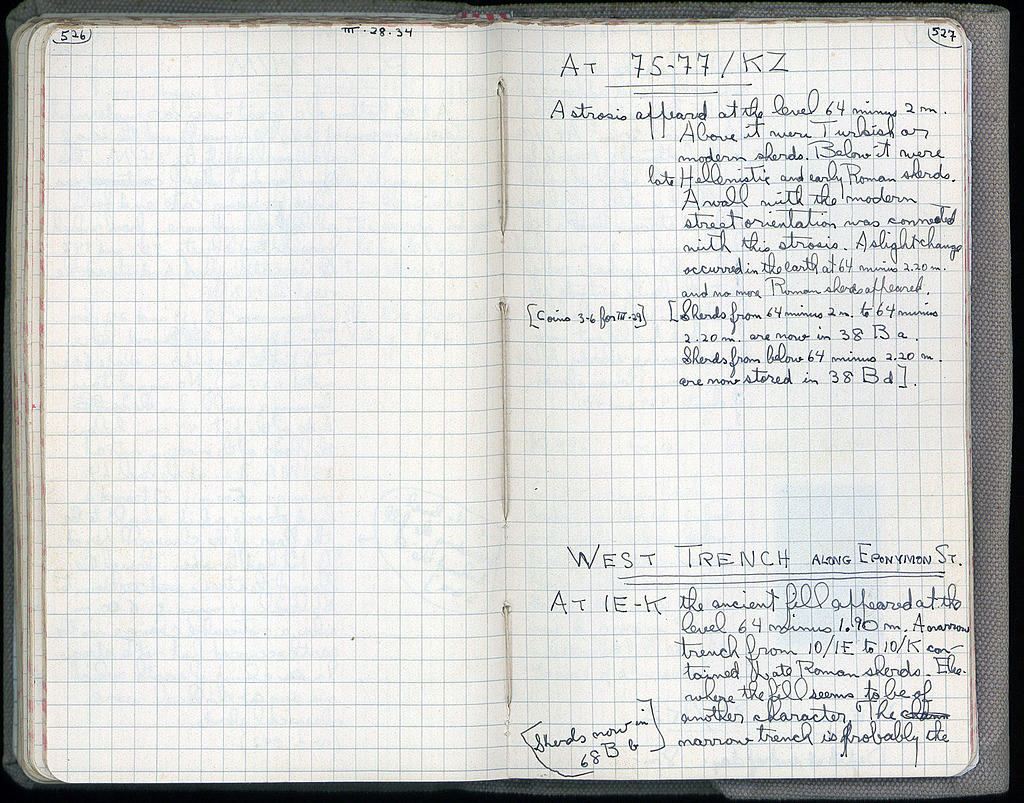 526
III·28·34
527
At 75-77/KZ
A strosis appeared at the level 64 minus 2 m.
Above it were Turkish or
modern sherds. Below it were
late Hellenistic and early Roman sherds.
A wall with the modern
street orientation was connected
with this strosis. A slight change
occurred in the earth at 64 minus 2.20 m.
and no more Roman sherds appeared.
[Coins 3-6 for III-29] [Sherds from 64 minus 2 m. to 64 minus
2.20 m. are now in 38 B a.
Sherds from below 64 minus 2.20 m.
are now stored in 38 B d].
West Trench along Eponymon St.
At IE-K the ancient fill appeared at the
level 64 minus 1.90 m. A narrow
trench from 10/IE to 10/K con-
tained Late Roman sherds. Else-
where the fill seems to be of
another character. The
narrow trench is probably the
[Sherds now in
68 B b]